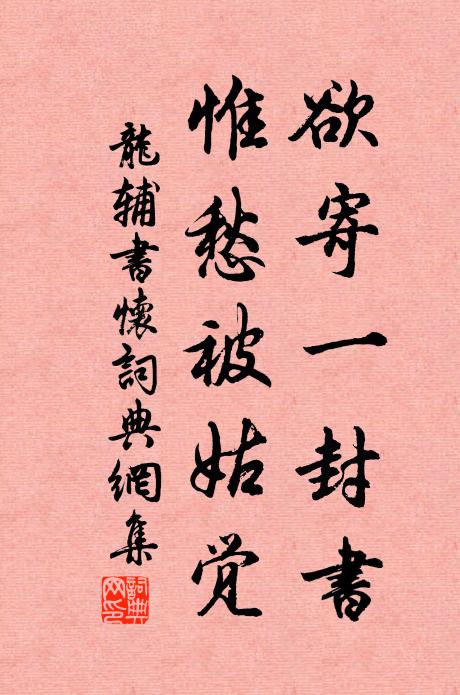 欲寄一封書
惟愁被姑觉
龍辅書懷詞典網集
詞典
网印